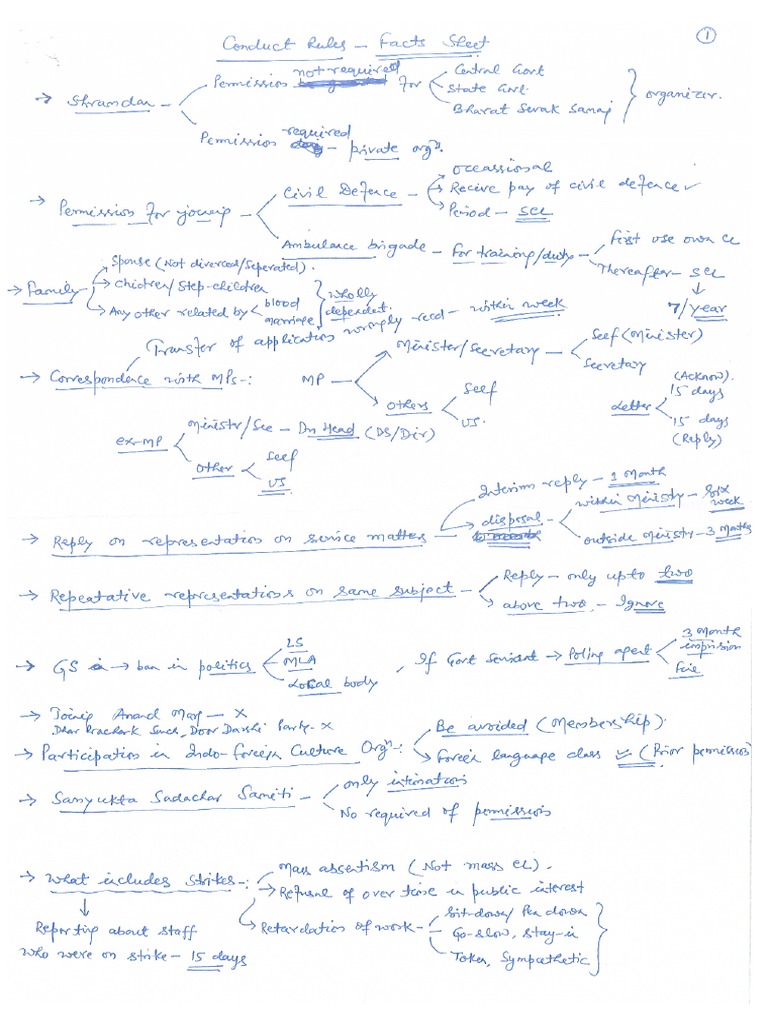 ①
Conduct Rules – Facts Sheet
→ Shramdan – Permission not required for – Central Govt
State Govt.
Bharat Sevak Samaj } organizer.
Permission required – private orgn.
→ Permission for joinig – Civil Defence – occassional
→ Recive pay of civil defence ✓
Period – SCL
Ambulance brigade – for training/duty – First use own CL
Thereafter – SCL
↓
7/year
→ Family – Spouse (Not diverced/Seperated).
→ Chidren/Step-children
Any other related by < blood
marriage } wholly
dependent.
Transfer of application wrongly recd – within week
→ Correspondence with MPs -: MP – Minister/Secretary – Self (Minister)
Secretary
Others – Self
US.
Letter – 15 days (Acknow).
15 days (Reply)
ex-MP – Ministr/Sec – Dn Head (DS/Dir)
Other – Self
US.
→ Reply on representation on service matters – Interim reply – 1 Month
→ disposal – within Ministry – Six week
outside Ministry – 3 Months
→ Repeatative representations on same subject – Reply – only up to two
→ above two – Ignore
→ GS → ban in politics – LS
MLA
Local body , If Govt Servant → Poling agent – 3 Month
Fine
→ Joinig Anand Marg – X
Door Darshi Party – X
→ Participation in Indo-foreign Culture Orgn -: Be avoided (Membership).
→ Foreign language class ✓ (Prior permission)
→ Samyukta Sadachar Samiti – only intimation
No required of permission
→ What includes Strikes -: Mass absentism (Not mass CL).
→ Refusal of over time in public interest
→ Retardation of work – Sit-down/ Pen down
Go-slow, stay-in
Token, Sympathetic }
↓
Reporting about staff
who were on strike – 15 days